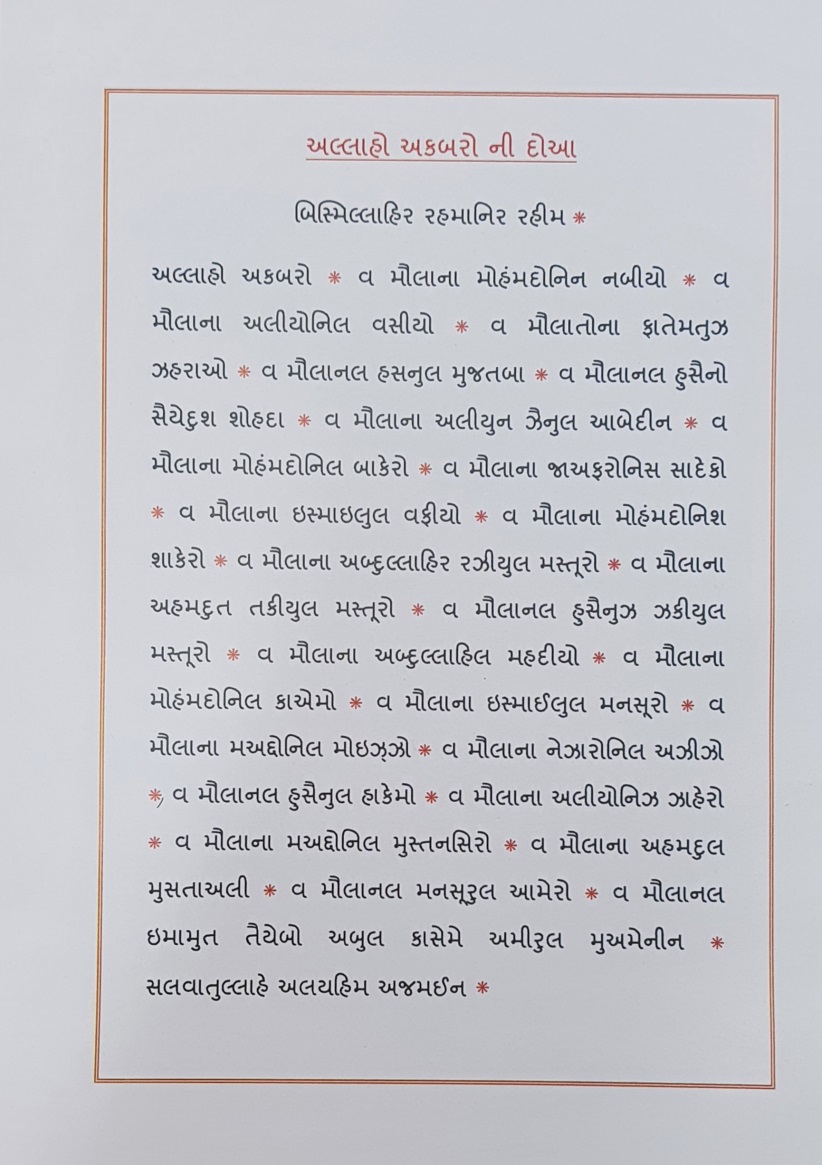 અલ્લાહો અકબરો ની દોઆ
બિસ્મિલ્લાહિર રહમાનિર રહીમ *
અલ્લાહો અકબરો * વ મૌલાના મોહંમદોનિન નબીયો * વ
મૌલાના અલીયોનિલ વસીયો * વ મૌલાતોના ફાતેમતુઝ
ઝહરાઓ * વ મૌલાનલ હસનુલ મુજતબા * વ મૌલાનલ હુસૈનો
સૈયેદુશ શોહદા * વ મૌલાના અલીયુન ઝૈનુલ આબેદીન * વ
મૌલાના મોહંમદોનિલ બાકેરો * વ મૌલાના જાઅફરોનિસ સાદેકો
* વ મૌલાના ઇસ્માઇલુલ વફીયો * વ મૌલાના મોહંમદોનિશ
શાકેરો * વ મૌલાના અબ્દુલ્લાહિર રઝીયુલ મસ્તૂરો * વ મૌલાના
અહમદુત તકીયુલ મસ્તૂરો * વ મૌલાનલ હુસૈનુઝ ઝકીયુલ
મસ્તૂરો * વ મૌલાના અબ્દુલ્લાહિલ મહદીયો * વ મૌલાના
મોહંમદોનિલ કાએમો * વ મૌલાના ઇસ્માઈલુલ મનસૂરો * વ
મૌલાના મઅદ્દોનિલ મોઇઝ્ઝો * વ મૌલાના નેઝારોનિલ અઝીઝો
*, વ મૌલાનલ હુસૈનુલ હાકેમો * વ મૌલાના અલીયોનિઝ ઝાહેરો
* વ મૌલાના મઅદ્દોનિલ મુસ્તનસિરો * વ મૌલાના અહમદુલ
મુસતાઅલી * વ મૌલાનલ મનસૂરુલ આમેરો * વ મૌલાનલ
ઇમામુત તૈયેબો અબુલ કાસેમે અમીરુલ મુઅમેનીન *
સલવાતુલ્લાહે અલયહિમ અજમઈન *